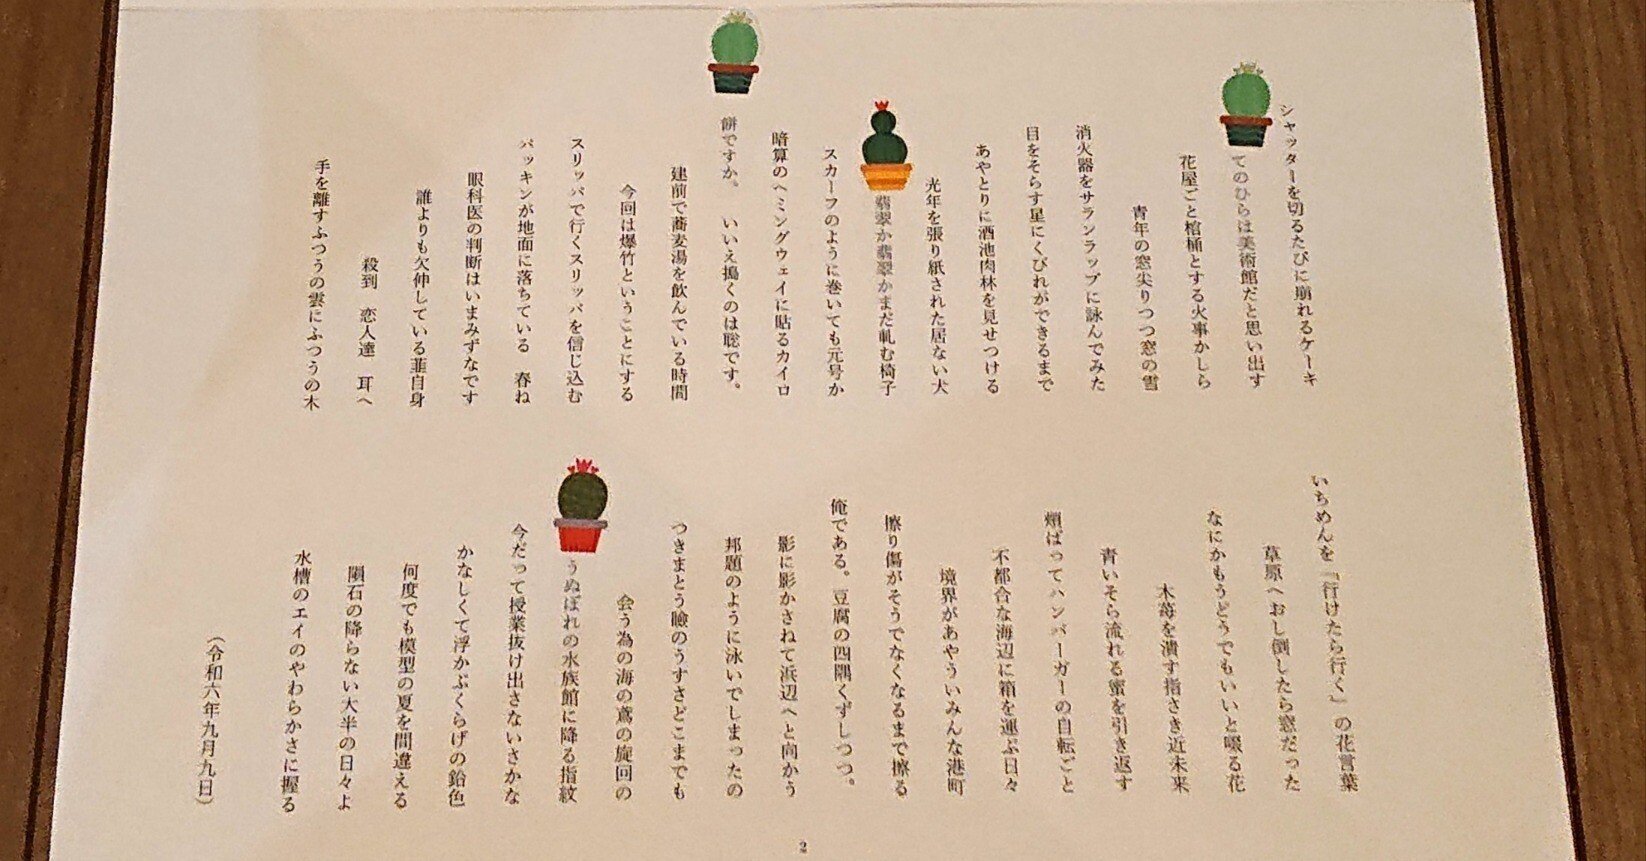 シャッターを切るたびに崩れるケーキ
てのひらは美術館だと思い出す
花屋ごと棺桶とする火事かしら
青年の窓尖りつつ窓の雪
消火器をサランラップに詠んでみた
目をそらす星にくびれができるまで
あやとりに酒池肉林を見せつける
光年を張り紙された居ない犬
翡翠か翡翠かまだ軋む椅子
スカーフのように巻いても元号か
暗算のヘミングウェイに貼るカイロ
餅ですか。　いいえ搗くのは聡です。
建前で蕎麦湯を飲んでいる時間
今回は爆竹ということにする
スリッパで行くスリッパを信じ込む
パッキンが地面に落ちている　春ね
眼科医の判断はいまみずなです
誰よりも欠伸している韮自身
殺到　恋人達　耳へ
手を離すふつうの雲にふつうの木
いちめんを「行けたら行く」の花言葉
草原へおし倒したら窓だった
なにかもうどうでもいいと啜る花
木苺を潰す指さき近未来
青いそら流れる蜜を引き返す
頬ばってハンバーガーの自転ごと
不都合な海辺に箱を運ぶ日々
境界があやういみんな港町
擦り傷がそうでなくなるまで擦る
俺である。豆腐の四隅くずしつつ。
影に影かさねて浜辺へと向かう
邦題のように泳いでしまったの
つきまとう瞼のうすさどこまでも
会う為の海の鳶の旋回の
うぬぼれの水族館に降る指紋
今だって授業抜け出さないさかな
かなしくて浮かぶくらげの鉛色
何度でも模型の夏を間違える
隕石の降らない大半の日々よ
水槽のエイのやわらかさに握る
（令和六年九月九日）
2